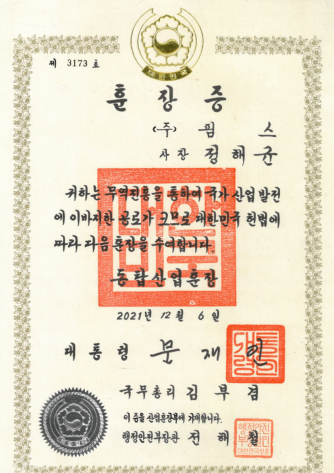 대한민국
제 3173 호
훈장증
(주) 핌 스
사장 정해균
귀하는 무역진흥을 통하여 국가 산업 발전
에 이바지한 공로가 크므로 대한민국 헌법에
따라 다음 훈장을 수여합니다.
동탑산업훈장
2021년 12월 6일
대통령 문재인
국무총리 김부겸
이 증을 산업훈장부에 기재합니다.
행정안전부장관 전해철